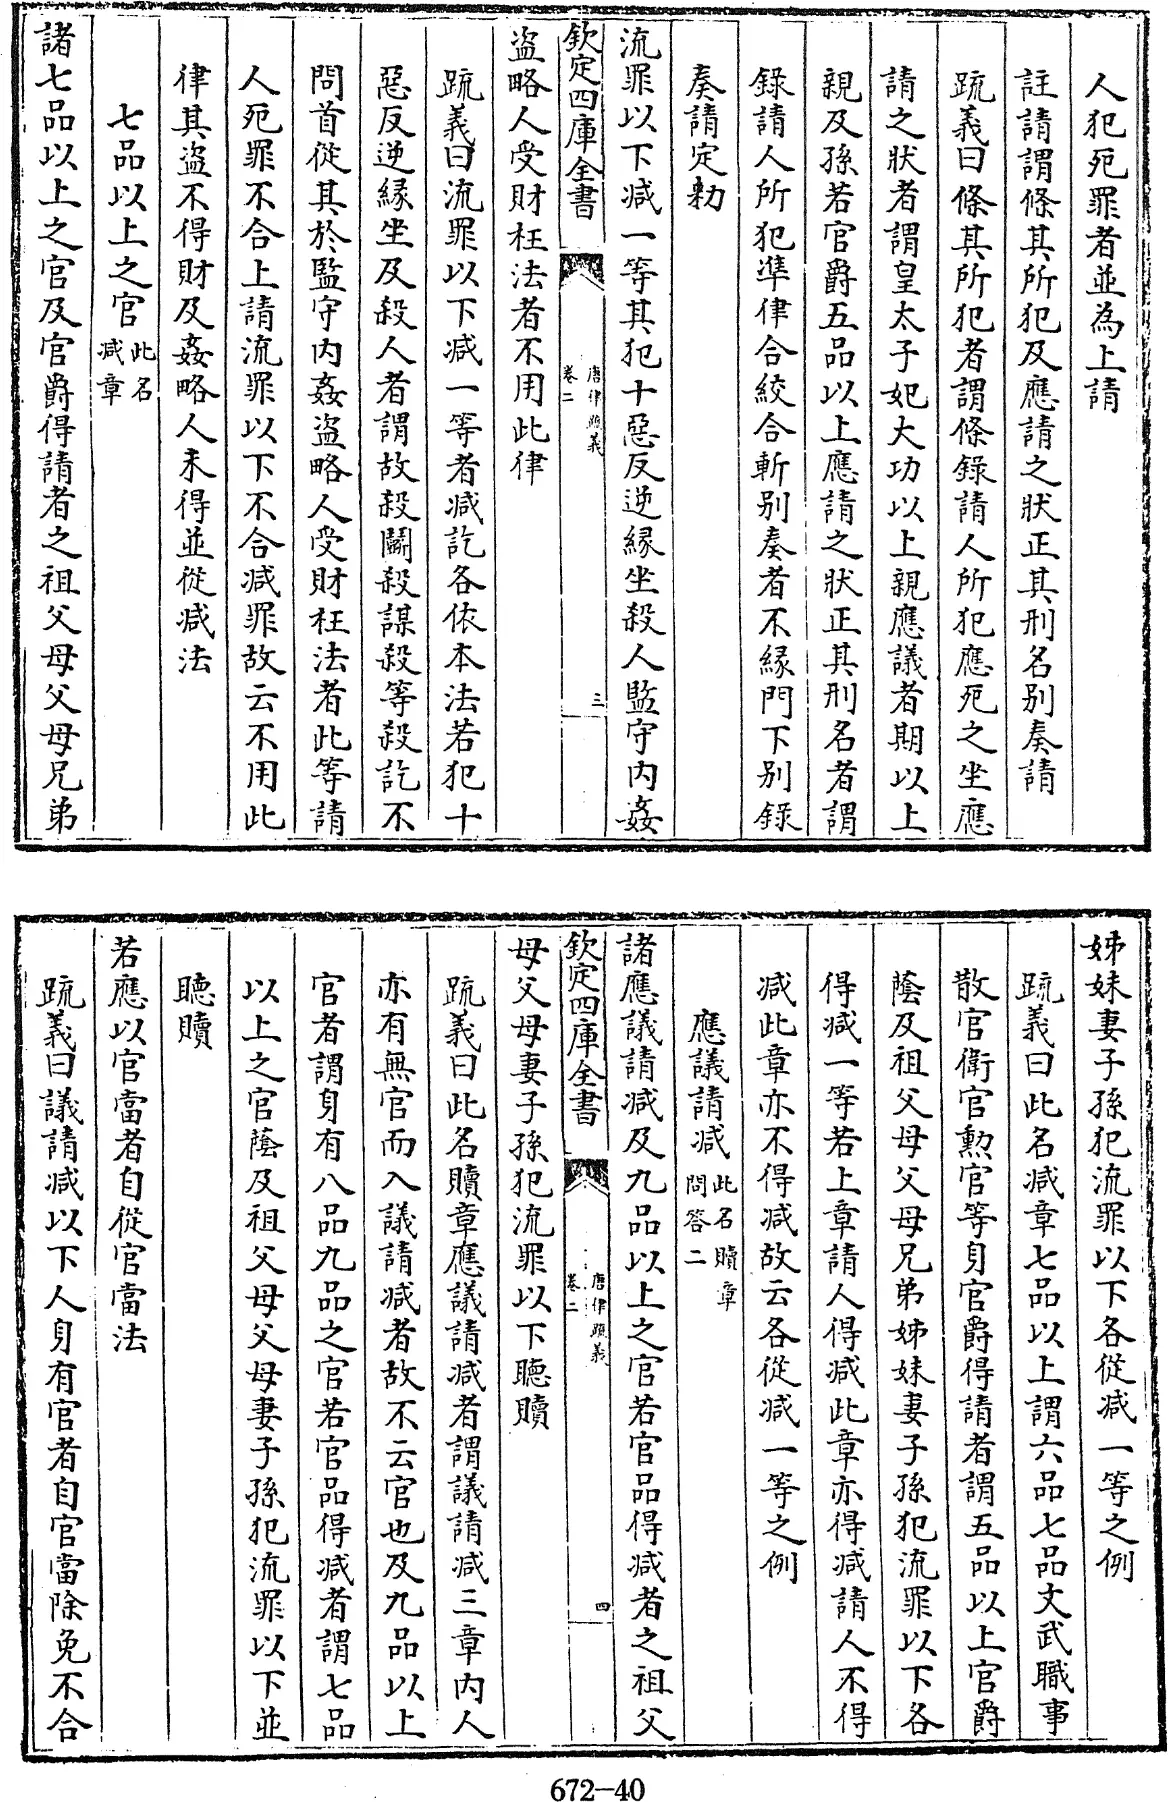 人犯死罪者並為上請
註請謂條其所犯及應請之狀正其刑名别奏請
疏義曰條其所犯者謂條錄請人所犯應死之坐應
請之狀者謂皇太子妃大功以上親應議者期以上
親及孫若官爵五品以上應請之狀正其刑名者謂
錄請人所犯凖律合絞合斬别奏者不緣門下别錄
奏請定勅
流罪以下减一等其犯十惡反逆緣坐殺人監守内姦
欽定四庫全書
唐律疏義
卷二
三
盗略人受財枉法者不用此律
疏義曰流罪以下减一等者减訖各依本法若犯十
惡反逆緣坐及殺人者謂故殺鬭殺謀殺等殺訖不
問首從其於監守内姦盗略人受財枉法者此等請
人死罪不合上請流罪以下不合减罪故云不用此
律其盗不得財及姦略人未得並從减法
七品以上之官此名
减章
諸七品以上之官及官爵得請者之祖父母父母兄弟
姊妹妻子孫犯流罪以下各從减一等之例
疏義曰此名减章七品以上謂六品七品文武職事
散官衛官勲官等身官爵得請者謂五品以上官爵
蔭及祖父母父母兄弟姊妹妻子孫犯流罪以下各
得减一等若上章請人得减此章亦得减請人不得
减此章亦不得减故云各從减一等之例
應議請减此名贖章
問答二
諸應議請减及九品以上之官若官品得减者之祖父
欽定四庫全書
唐律疏義
卷二
四
母父母妻子孫犯流罪以下聽贖
疏義曰此名贖章應議請减者謂議請减三章内人
亦有無官而入議請减者故不云官也及九品以上
官者謂身有八品九品之官若官品得减者謂七品
以上之官蔭及祖父母父母妻子孫犯流罪以下並
聽贖
若應以官當者自從官當法
疏義曰議請减以下人身有官者自官當除免不合
672-40